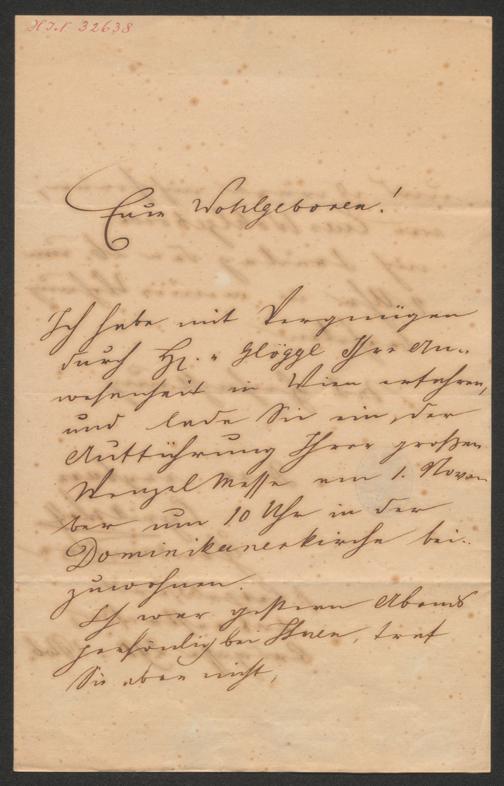 H.I.N. 32638
Euer Wohlgeboren!
Ich habe mit Vergnügen
durch Hr. v Glöggl Ihre An-
wesenheit in Wien erfahren,
und lade Sie ein, der
Aufführung Ihrer großen
Wenzel Messe am 1. Novem
ber um 10 Uhr in der
Dominikanerkirche bei-
zuwohnen.
Ich war gestern Abends
persönlich bei Ihnen, traf
Sie aber nicht,